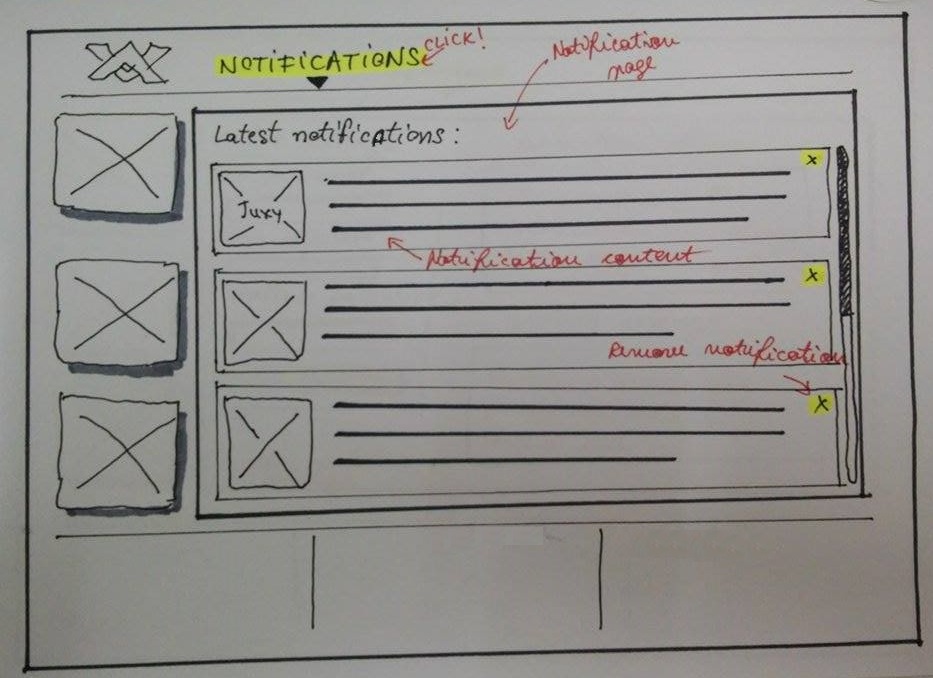 NOTIFICATIONS
CLICK!
Notification
page
Latest notifications:
x
Juxy
Notification content
x
Remove notification
x